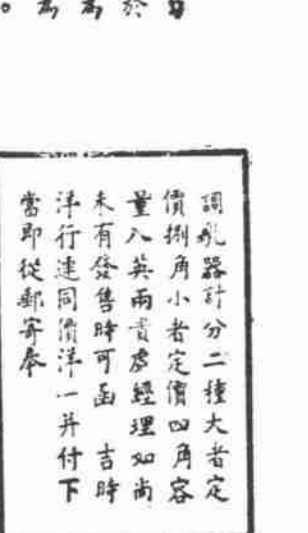 調乳器計分二種大者定
價捌角小者定價四角容
量八英兩貴處經理如尚
未有發售時可函 吉時
洋行連同價洋一并付下
當即從郵寄奉